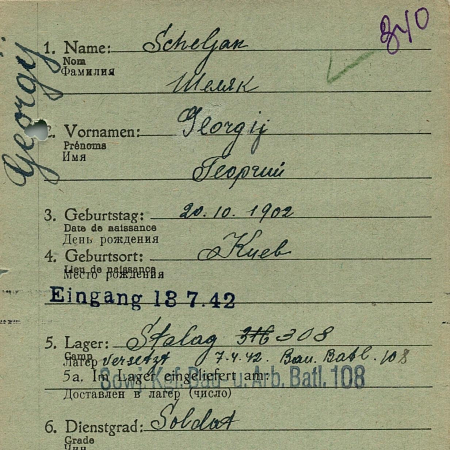 840
1. Name: Scheljak
Nom
Фамилия
Шеляк
Georgij
2. Vornamen: Georgij
Prénoms
Имя
Георгий
3. Geburtstag: 20.10.1902
Date de naissance
День рождения
4. Geburtsort: Kиев
Lieu de naissance
Место рождения
Eingang 18 7.42
5. Lager: Stalag 316 308
Camp
Лагерь versetzt 7.4.42. Bau. Batl. 108
5a. Im Lager eingeliefert am:
Sowj. Kgf. Bau- u. Arb. Batl. 108
Доставлен в лагерь (число)
6. Dienstgrad: Soldat
Grade
Чин